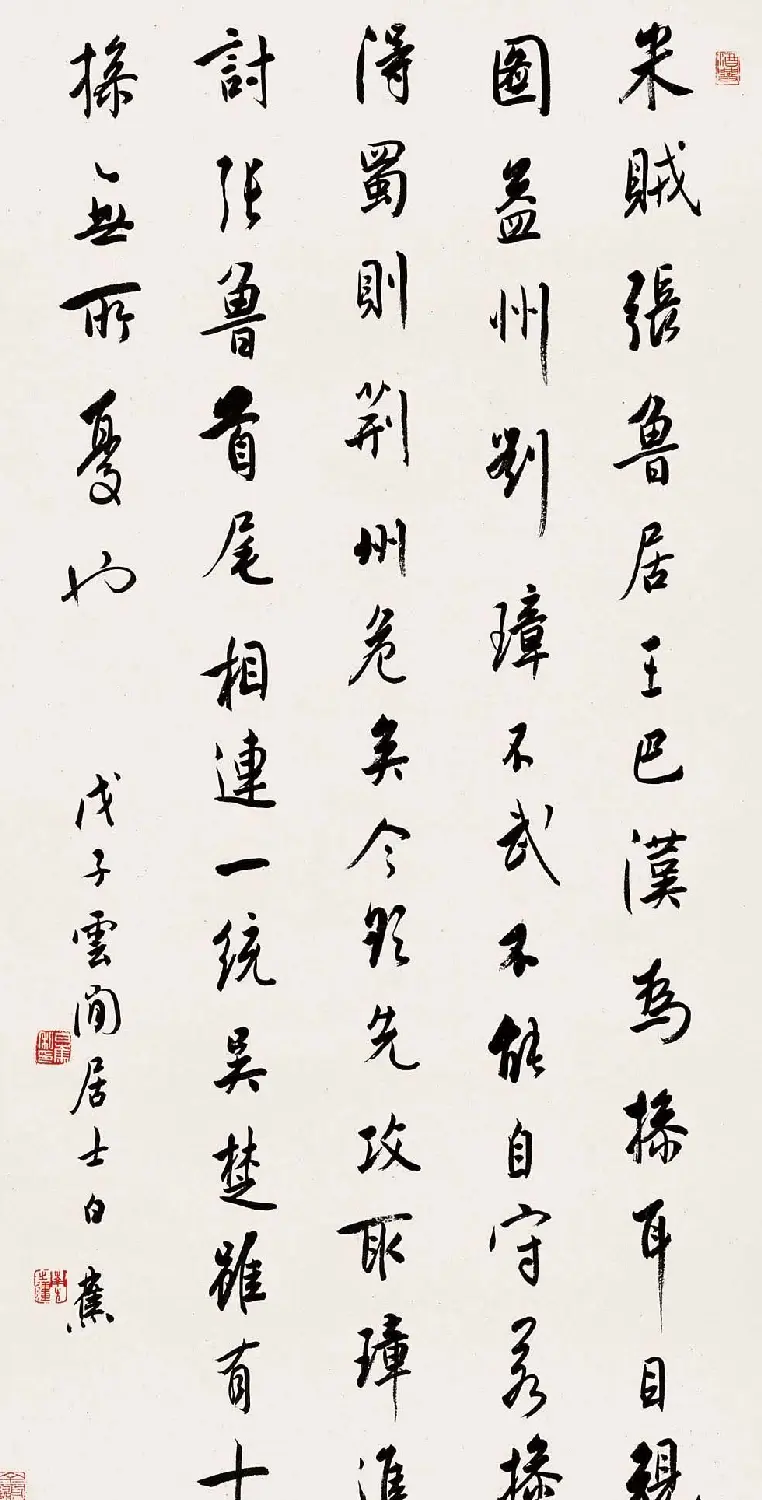 米賊張魯居王巴漢為操耳目規
圖益州劉璋不武不能自守若操
得蜀則荊州危矣今欲先攻取璋進
討張魯首尾相連一統吳楚雖有十
操無所憂也
戊子雲間居士白蕉